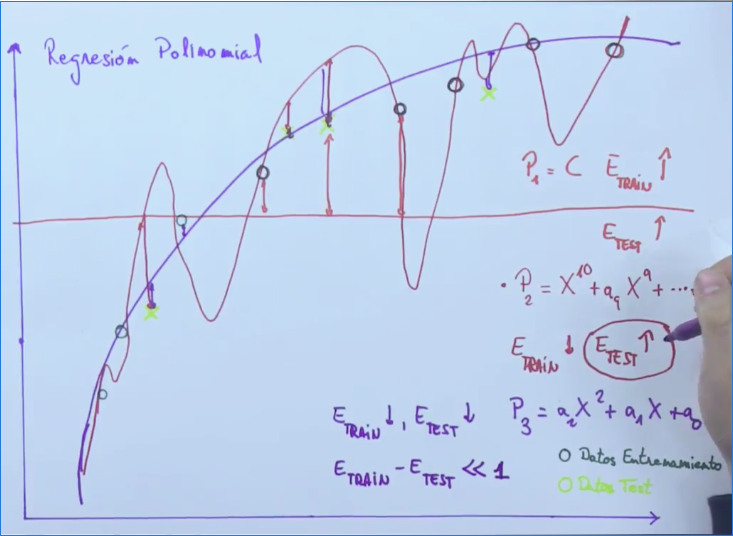 Regresión Polinomial
P₁ = C E_TRAIN ↑
E_TEST ↑
· P₂ = X¹⁰ + a₉ X⁹ + ....
E_TRAIN ↓ E_TEST ↑
E_TRAIN ↓, E_TEST ↓ P₃ = a₂X² + a₁X + a₀
E_TRAIN - E_TEST << 1
O Datos Entrenamiento
O Datos Test